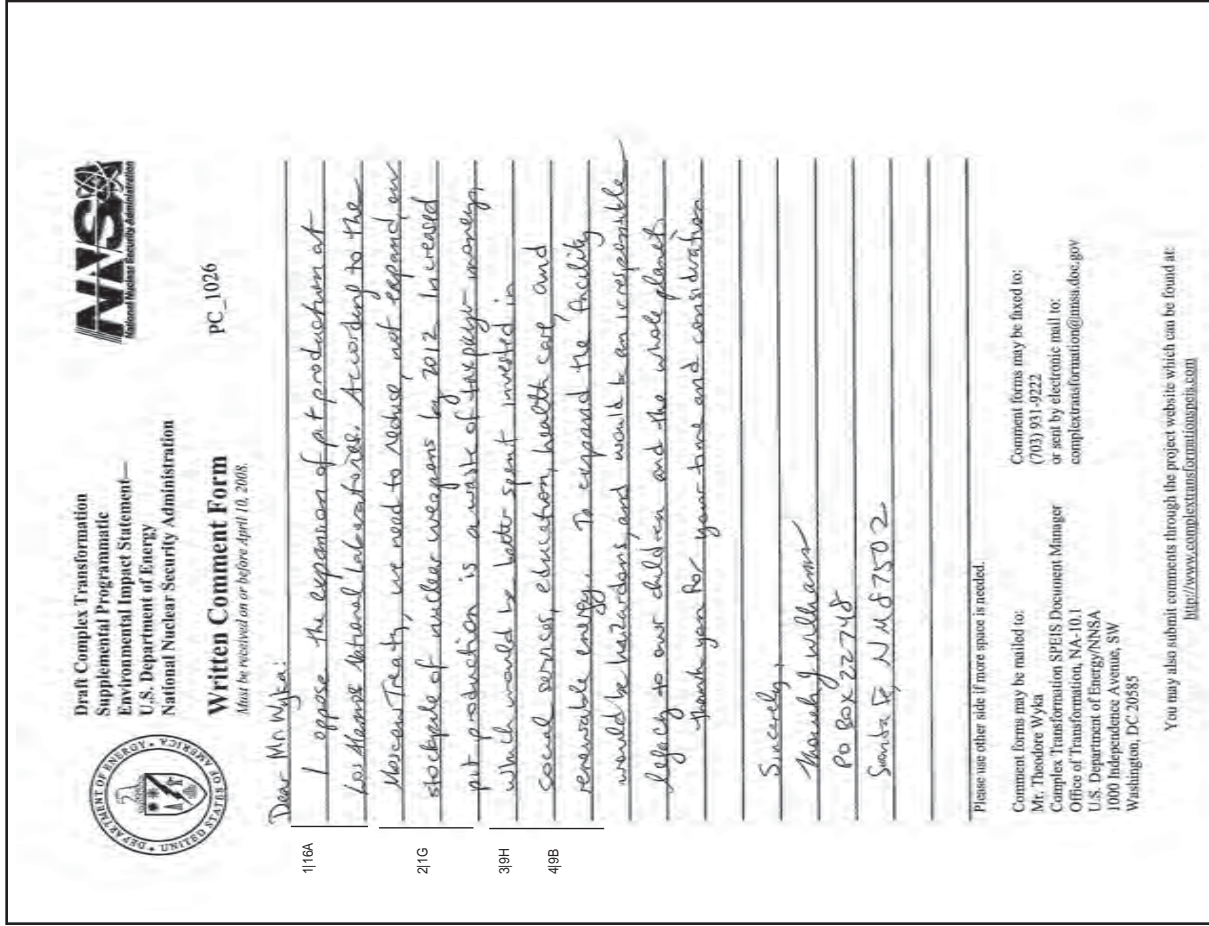 DEPARTMENT OF ENERGY • UNITED STATES OF AMERICA
Draft Complex Transformation
Supplemental Programmatic
Environmental Impact Statement—
U.S. Department of Energy
National Nuclear Security Administration
NNSA
National Nuclear Security Administration
Written Comment Form
PC_1026
Must be received on or before April 10, 2008.
Dear Mr. Wyka:
I oppose the expansion of pit production at
Los Alamos National Laboratories. According to the
Moscow Treaty, we need to reduce, not expand, our
stockpile of nuclear weapons by 2012. Increased
pit production is a waste of taxpayer moneys,
which would be better spent invested in
social services, education, health care, and
renewable energy. To expand the facility
would be hazardous, and would be an irresponsible
legacy to our children and the whole planet.
Thank you for your time and consideration
Sincerely,
J Williams
PO Box 22748
Santa Fe, NM 87502
1|16A
2|1G
3|9H
4|9B
Please use other side if more space is needed.
Comment forms may be mailed to:
Mr. Theodore Wyka
Complex Transformation SPEIS Document Manager
Office of Transformation, NA-10.1
U.S. Department of Energy/NNSA
1000 Independence Avenue, SW
Washington, DC 20585
Comment forms may be faxed to:
(703) 931-9222
or sent by electronic mail to:
complextransformation@nnsa.doe.gov
You may also submit comments through the project website which can be found at:
http://www.complextransformationspeis.com